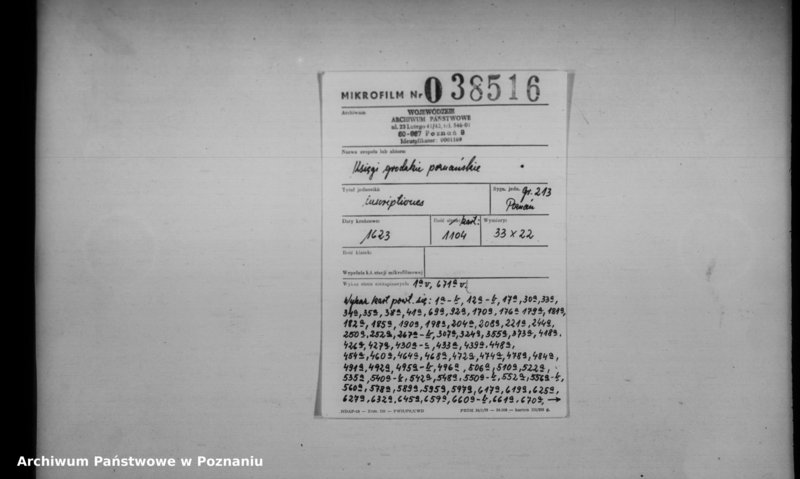 MIKROFILM Nr 0 38516
Archiwum
WOJEWÓDZKIE
ARCHIWUM PAŃSTWOWE
ul. 23 Lutego 41/43, tel. 546-01
60-967 Poznań 9
Identyfikator: 0001169
Nazwa zespołu lub zbioru
Księgi grodzkie poznańskie
Tytuł jednostki: Sygn. jedn. Gr. 213
Inscriptiones Poznań
Daty krańcowe: Ilość kart: Wymiary:
1623 1104 33 x 22
Ilość klatek:
Wypełnia k.t. stacji mikrofilmowej
Wykaz stron niezapisanych: 1v, 671av,
Wykaz kart powt. się: 1a-b, 12a-b, 17a, 30a, 33a,
34a, 35a, 38a, 41a, 69a, 92a, 170a, 176a, 179a, 181a,
182a, 185a, 190a, 198a, 204a, 208a, 221a, 244a,
250a, 252a, 267a-b, 307a, 324a, 355a, 373a, 418a,
426a, 427a, 430a-c, 433a, 439a, 448a,
454a, 460a, 464a, 468a, 472a, 474a, 478a, 484a,
491a, 492a, 495a-b, 496a, 506a, 510a, 522a,
535a, 540a-b, 542a, 548a, 550a-b, 552a, 556a-b,
560a, 578a, 589a, 595a, 597a, 617a, 619a, 625a,
627a, 632a, 645a, 659a, 660a-b, 661a, 670a, →
Archiwum Państwowe w Poznaniu